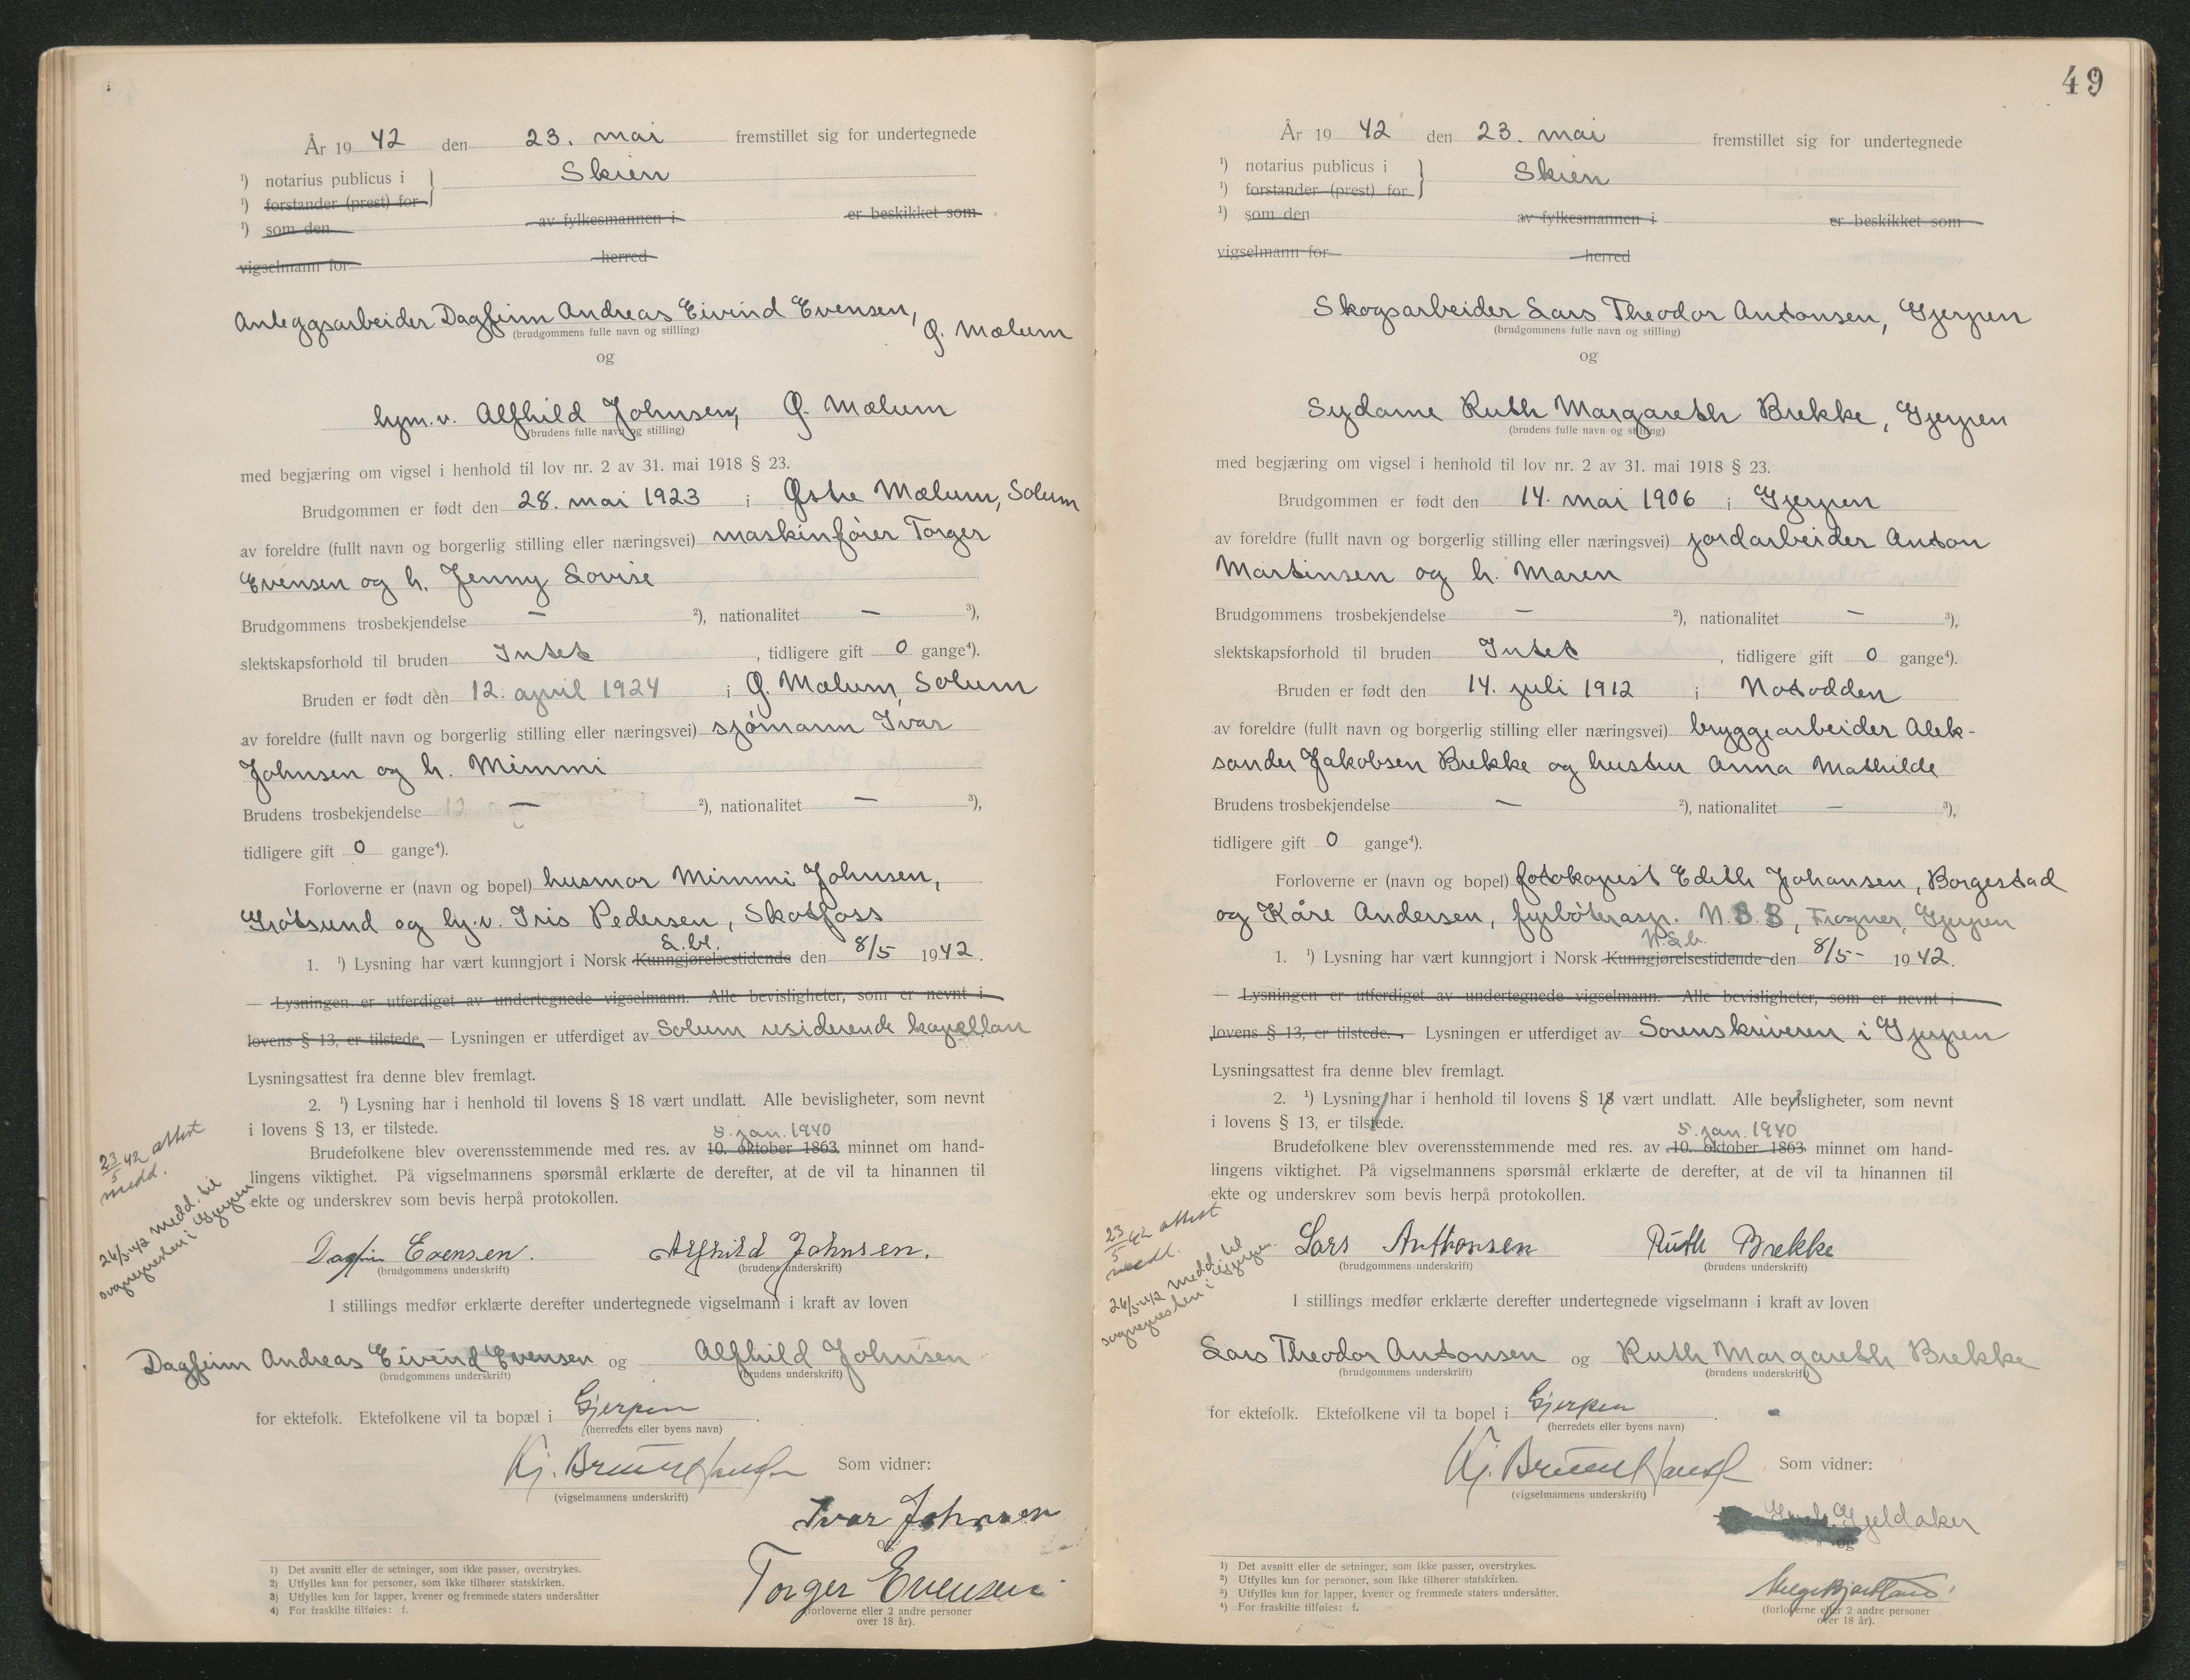 År 1942 den 23. mai fremstillet sig for undertegnede
¹) notarius publicus i Skien
¹) forstander (prest) for
¹) som den av fylkesmannen i er beskikket som
vigselmann for herred
Anleggsarbeider Dagfinn Andreas Eivind Evensen, Ø. Mælum
(brudgommens fulle navn og stilling)
og
hjm.v. Alfhild Johnsen, Ø. Mælum
(brudens fulle navn og stilling)
med begjæring om vigsel i henhold til lov nr. 2 av 31. mai 1918 § 23.
Brudgommen er født den 28. mai 1923 i Østre Mælum, Solum
av foreldre (fullt navn og borgerlig stilling eller næringsvei) maskinfører Torger
Evensen og h. Jenny Lovise
Brudgommens trosbekjendelse — ²), nationalitet — ³),
slektskapsforhold til bruden Intet, tidligere gift 0 gange⁴).
Bruden er født den 12. april 1924 i Ø. Mælum, Solum
av foreldre (fullt navn og borgerlig stilling eller næringsvei) sjømann Ivar
Johnsen og h. Mimmi
Brudens trosbekjendelse — ²), nationalitet — ³),
tidligere gift 0 gange⁴).
Forloverne er (navn og bopel) husmor Mimmi Johnsen,
Gråtsund og hj.v. Iris Pedersen, Skotfoss
L.bl.
1. ¹) Lysning har vært kunngjort i Norsk Kunngjørelsestidende den 8/5 1942.
— Lysningen er utferdiget av undertegnede vigselmann. Alle bevisligheter, som er nevnt i
lovens § 13, er tilstede. — Lysningen er utferdiget av Solum residerende kapellan
Lysningsattest fra denne blev fremlagt.
2. ¹) Lysning har i henhold til lovens § 18 vært undlatt. Alle bevisligheter, som nevnt
i lovens § 13, er tilstede.
5. jan. 1940
Brudefolkene blev overensstemmende med res. av 10. oktober 1863 minnet om hand-
lingens viktighet. På vigselmannens spørsmål erklærte de derefter, at de vil ta hinannen til
ekte og underskrev som bevis herpå protokollen.
23/5 42 attest
medd.
26/5-42 medd. til
sognepresten i Gjerpen
Dagfin Evensen. Alfhild Johnsen.
(brudgommens underskrift) (brudens underskrift)
I stillings medfør erklærte derefter undertegnede vigselmann i kraft av loven
Dagfinn Andreas Eivind Evensen og Alfhild Johnsen
(brudgommens underskrift) (brudens underskrift)
for ektefolk. Ektefolkene vil ta bopæl i Gjerpen.
(herredets eller byens navn)
Kj. Som vidner:
(vigselmannens underskrift)
Ivar Johnsen
og
Torger Evensen
(forloverne eller 2 andre personer
over 18 år).
1) Det avsnitt eller de setninger, som ikke passer, overstrykes.
2) Utfylles kun for personer, som ikke tilhører statskirken.
3) Utfylles kun for lapper, kvener og fremmede staters undersåtter
4) For fraskilte tilføies: f.
49
År 1942 den 23. mai fremstillet sig for undertegnede
¹) notarius publicus i Skien
¹) forstander (prest) for
¹) som den av fylkesmannen i er beskikket som
vigselmann for herred
Skogsarbeider Lars Theodor Antonsen, Gjerpen
(brudgommens fulle navn og stilling)
og
Sydame Ruth Margareth Brekke, Gjerpen
(brudens fulle navn og stilling)
med begjæring om vigsel i henhold til lov nr. 2 av 31. mai 1918 § 23.
Brudgommen er født den 14. mai 1906 i Gjerpen
av foreldre (fullt navn og borgerlig stilling eller næringsvei) jordarbeider Anton
Martinsen og h. Maren
Brudgommens trosbekjendelse — ²), nationalitet — ³),
slektskapsforhold til bruden Intet, tidligere gift 0 gange⁴).
Bruden er født den 14. juli 1912 i Notodden
av foreldre (fullt navn og borgerlig stilling eller næringsvei) bryggearbeider Alek-
sander Jakobsen Brekke og hustru Anna Mathilde
Brudens trosbekjendelse — ²), nationalitet — ³),
tidligere gift 0 gange⁴).
Forloverne er (navn og bopel) fotokopist Edith Johansen, Borgestad
og Kåre Andersen, fyrbøterasp. N.S.B, Frogner, Gjerpen
N.L.b.
1. ¹) Lysning har vært kunngjort i Norsk Kunngjørelsestidende den 8/5- 1942.
— Lysningen er utferdiget av undertegnede vigselmann. Alle bevisligheter, som er nevnt i
lovens § 13, er tilstede. Lysningen er utferdiget av Sorenskriveren i Gjerpen
Lysningsattest fra denne blev fremlagt.
2. ¹) Lysning har i henhold til lovens § 18 vært undlatt. Alle bevisligheter, som nevnt
i lovens § 13, er tilstede.
5. jan. 1940
Brudefolkene blev overensstemmende med res. av 10. oktober 1863 minnet om hand-
lingens viktighet. På vigselmannens spørsmål erklærte de derefter, at de vil ta hinannen til
ekte og underskrev som bevis herpå protokollen.
23/5 42 attest
medd.
26/5-42 medd. til
sognepresten i Gjerpen.
Lars Anthonsen Ruth Brekke
(brudgommens underskrift) (brudens underskrift)
I stillings medfør erklærte derefter undertegnede vigselmann i kraft av loven
Lars Theodor Antonsen og Ruth Margareth Brekke
(brudgommens underskrift) (brudens underskrift)
for ektefolk. Ektefolkene vil ta bopel i Gjerpen.
(herredets eller byens navn)
Kj. Som vidner:
(vigselmannens underskrift)
Gjeldaker
og
(forloverne eller 2 andre personer
over 18 år).
1) Det avsnitt eller de setninger, som ikke passer, overstrykes.
2) Utfylles kun for personer, som ikke tilhører statskirken.
3) Utfylles kun for lapper, kvener og fremmede staters undersåtter.
4) For fraskilte tilføies: f.